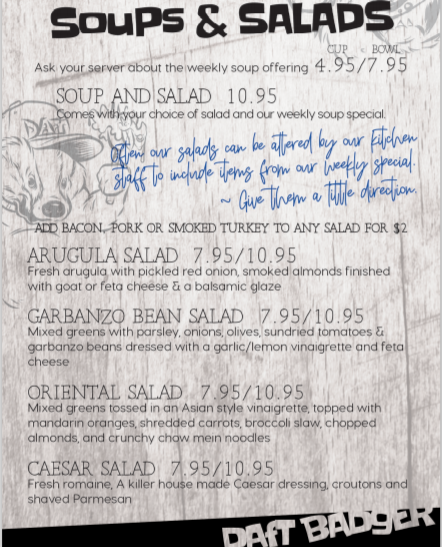 SOUPS & SALADS
CUP BOWL
Ask your server about the weekly soup offering 4.95/7.95
SOUP AND SALAD 10.95
Comes with your choice of salad and our weekly soup special.
Often our salads can be altered by our kitchen
staff to include items from our weekly special.
~ Give them a little direction.
ADD BACON, PORK OR SMOKED TURKEY TO ANY SALAD FOR $2
ARUGULA SALAD 7.95/10.95
Fresh arugula with pickled red onion, smoked almonds finished
with goat or feta cheese & a balsamic glaze
GARBANZO BEAN SALAD 7.95/10.95
Mixed greens with parsley, onions, olives, sundried tomatoes &
garbanzo beans dressed with a garlic/lemon vinaigrette and feta
cheese
ORIENTAL SALAD 7.95/10.95
Mixed greens tossed in an Asian style vinaigrette, topped with
mandarin oranges, shredded carrots, broccoli slaw, chopped
almonds, and crunchy chow mein noodles
CAESAR SALAD 7.95/10.95
Fresh romaine, A killer house made Caesar dressing, croutons and
shaved Parmesan
DAFT BADGER